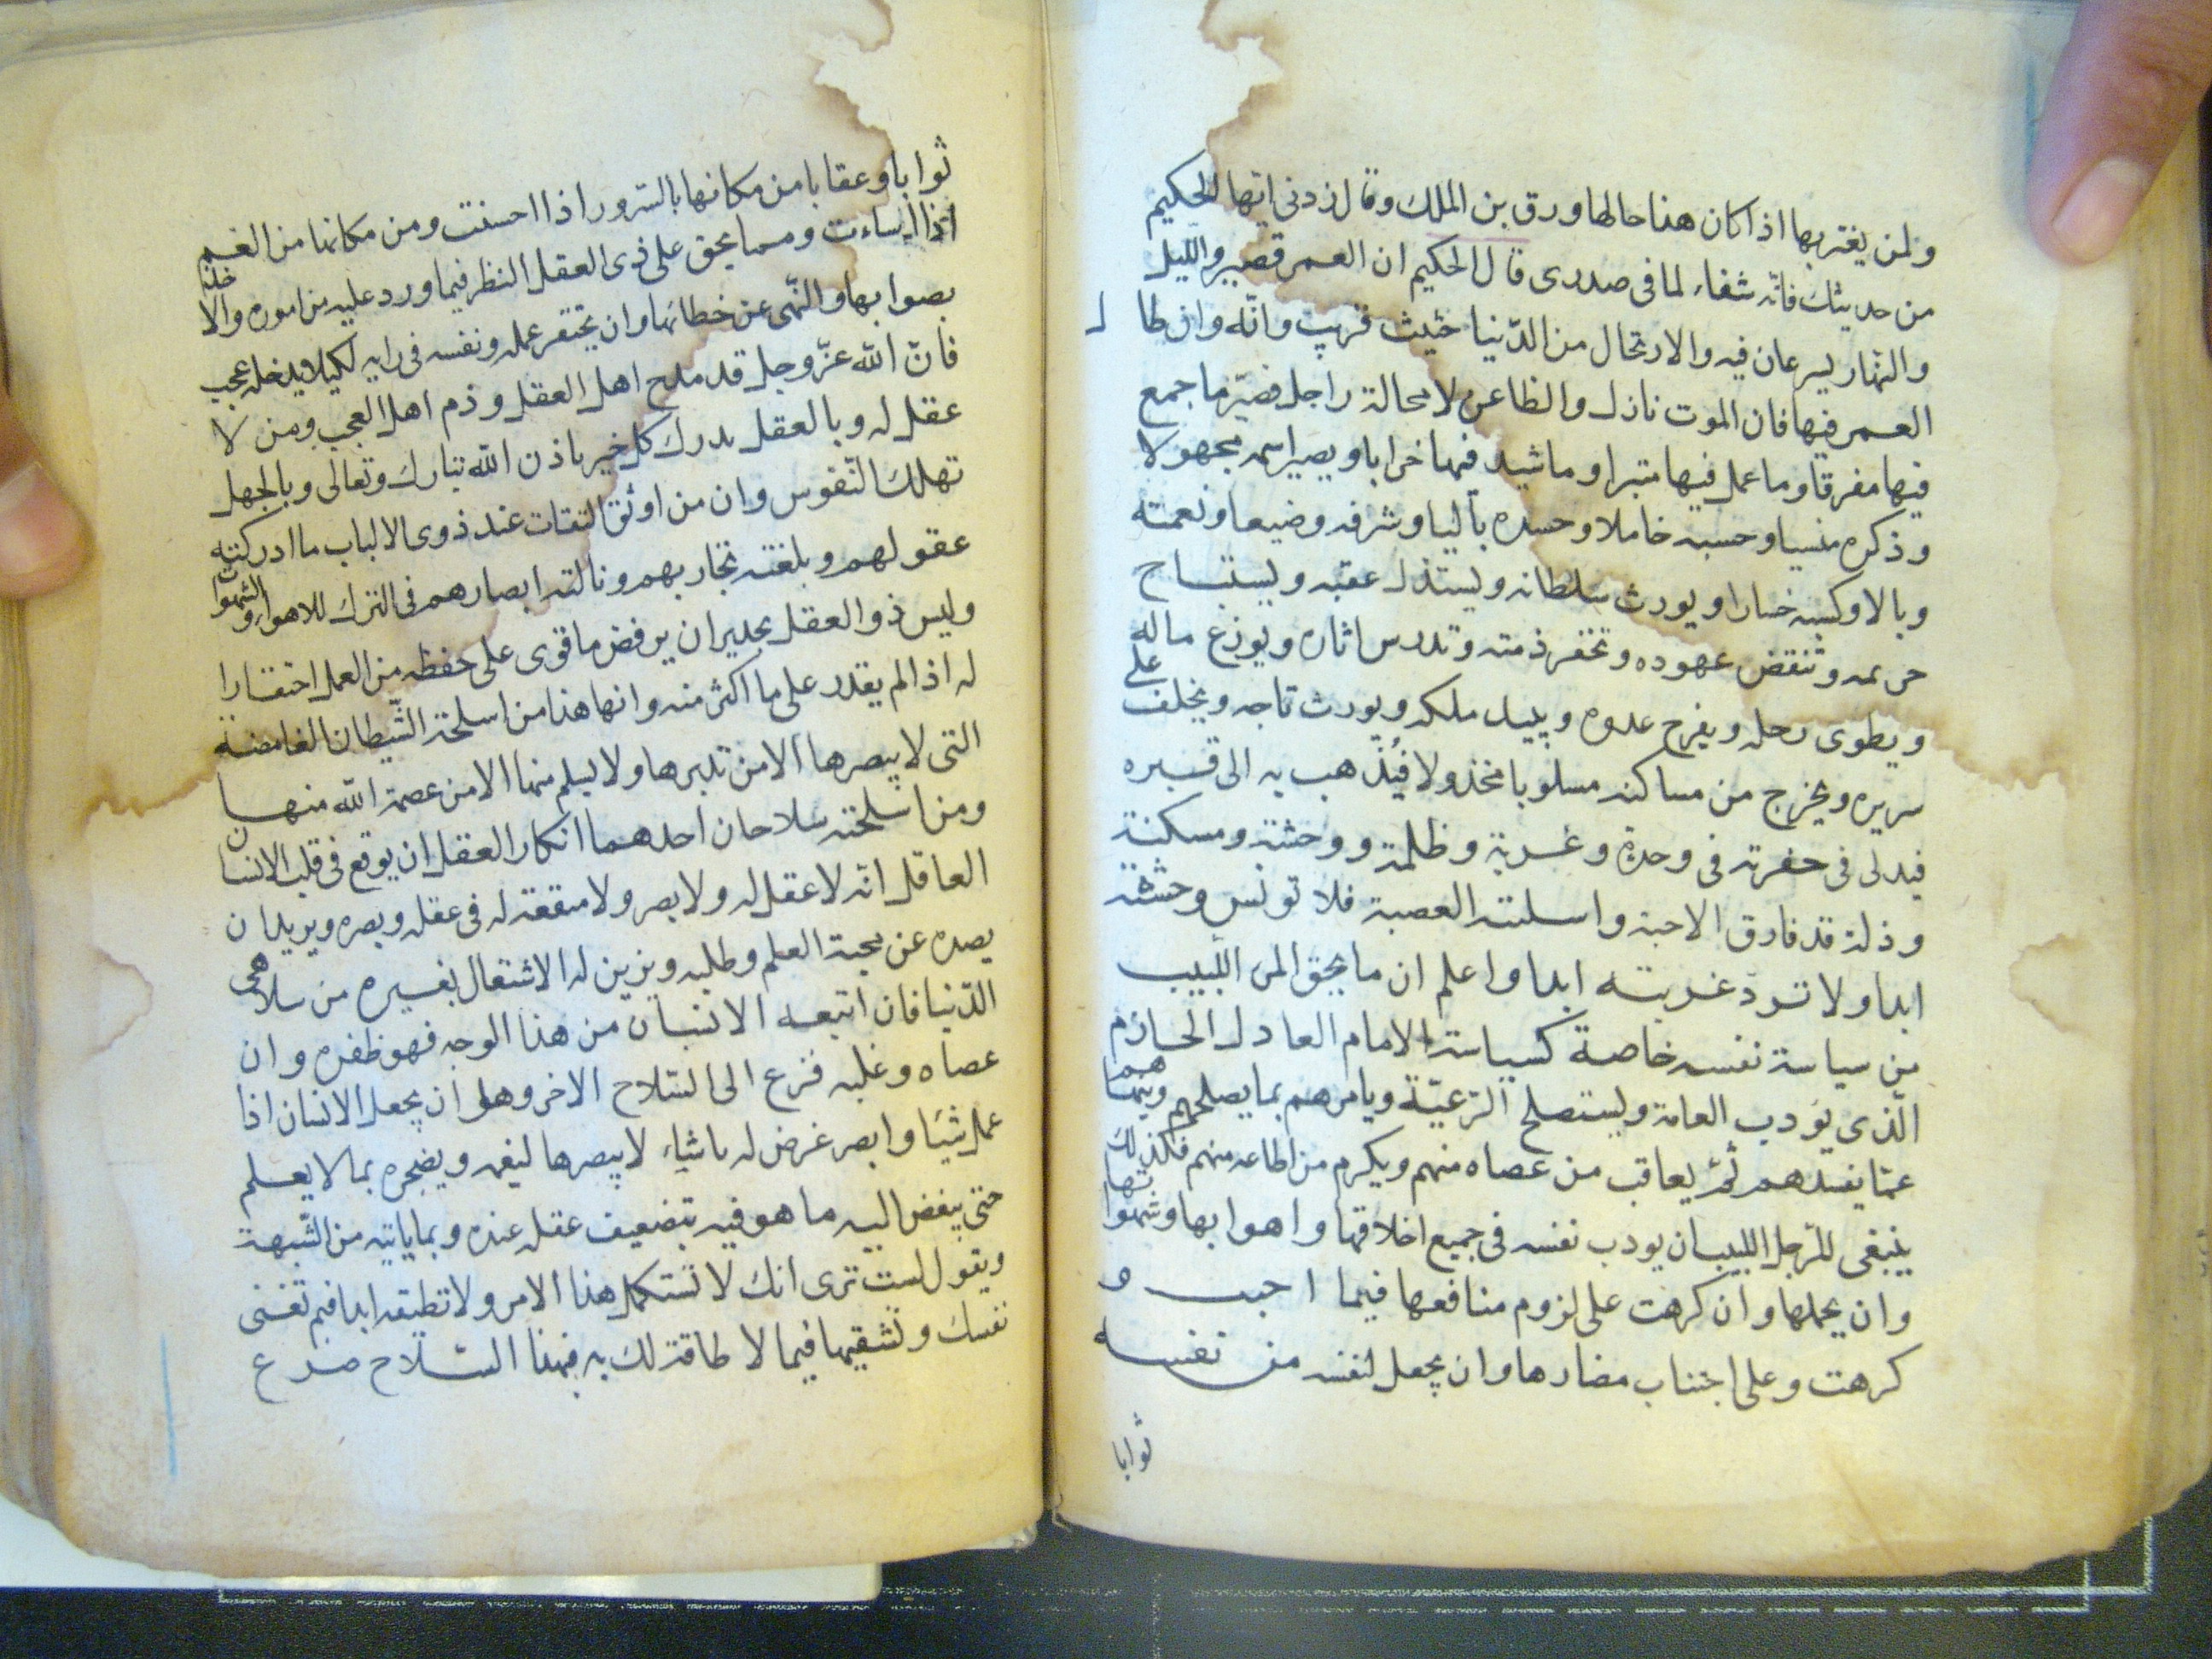 ولمن يغتر بها اذا كان هذا حالها ورق بن الملك وقال زدنى ايها الحكيم
من حديثك فانّه شفاء لما فى صدرى قال الحكيم ان العمر قصير والليل
والنهار يسرعان فيه والارتحال من الدّنيا حثيث قريب وانّه وان طال
العمر فيها فان الموت نازل والظاعن لا محالة راحل فيصير ما جمع
فيها مفرقا وما عمل فيها متبرا وما شيد فيها خرابا ويصير اسمه مجهولا
وذكره منسيا وحسبه خاملا وجسده باليا وشرفه وضيعا ونعمته
وبالا وكسبه خسارا ويورث سلطانه ويستذل عقبه ويستباح
حريمه وتنقض عهوده وتخفر ذمته وتدرس اثاره ويوزع ماله
ويطوى رحله ويفرح عدوه ويبيد ملكه ويورث تاجه ويخلف على
سريره ويخرج من مساكنه مسلوبا مخذولا فيذهب به الى قبره
فيدلى فى حفرته فى وحدة وغربة وظلمة ووحشة ومسكنة
وذلة قد فارق الاحبة واسلمته العصبة فلا تونس وحشته
ابدا ولا تردّ غربته ابدا واعلم ان ما يحق المرء اللبيب
من سياسة نفسه خاصة كسياسة الامام العادل الحازم
الّذى يؤدب العامة ويستصلح الرّعيّة ويامرهم بما يصلحهم وينهاهم
عمّا يفسدهم ثم يعاقب من عصاه منهم ويكرم من اطاعه منهم فكذلك
ينبغى للرّجل اللبيب ان يودب نفسه فى جميع اخلاقها واهوابها وشهواتها
وان يحملها وان كرهت على لزوم منافعها فيما احبت و
كرهت وعلى اجتناب مضارها وان يجعل لنفسه من نفسه
ثوابا
ثوابا وعقابا من مكانها بالسّرور اذا احسنت ومن مكانها من الغم
اذا اساءت ومما يحق على ذى العقل النظر فيما ورد عليه من اموره والاخذ
بصوابها والنّهى عن خطائها وان يحتقر عمله ونفسه فى رايه لكيلا يدخله عجب
فانّ الله عزّ وجل قد مدح اهل العقل وذم اهل العجب ومن لا
عقل له وبالعقل يدرك كل خير باذن الله تبارك وتعالى وبالجهل
تهلك النّفوس وان من اوثق الثقات عند ذوى الالباب ما ادركته
عقولهم وبلغته تجاربهم ونالته ابصارهم فى الترك للاهواء والشهوات
وليس ذو العقل بجدير ان يرفض ما قوى على حفظه من العمل احتقارا
له اذا لم يقدر على ما اكثر منه وانما هذا من اسلحة الشّيطان الغامضة
التى لا يبصرها الا من تدبرها ولا يسلم منها الا من عصمة الله منها
ومن اسلحته سلاحان احدهما انكار العقل ان يوقع فى قلب الانسان
العاقل انّه لا عقل له ولا بصر ولا منفعة له فى عقله وبصره ويريد ان
يصده عن محبة العلم وطلبه ويزين له الاشتغال بغيره من ملاهى
الدّنيا فان اتبعه الانسان من هذا الوجه فهو ظفره وان
عصاه وغلبه فزع الى السّلاح الاخر وهو ان يجعل الانسان اذا
عمل شيئا وابصر عرض له باشياء لا يبصرها ليغمه ويضجره بما لا يعلم
حتى يبغض اليه ما هو فيه بتضعيف عقله عنده وبما ياتيه من الشّبهة
ويقول الست ترى انك لا تستكمل هذا الامر ولا تطيقه ابدا فبم تعنى
نفسك وتشقيها فيما لا طاقة لك به فبهذا السّلاح صرع